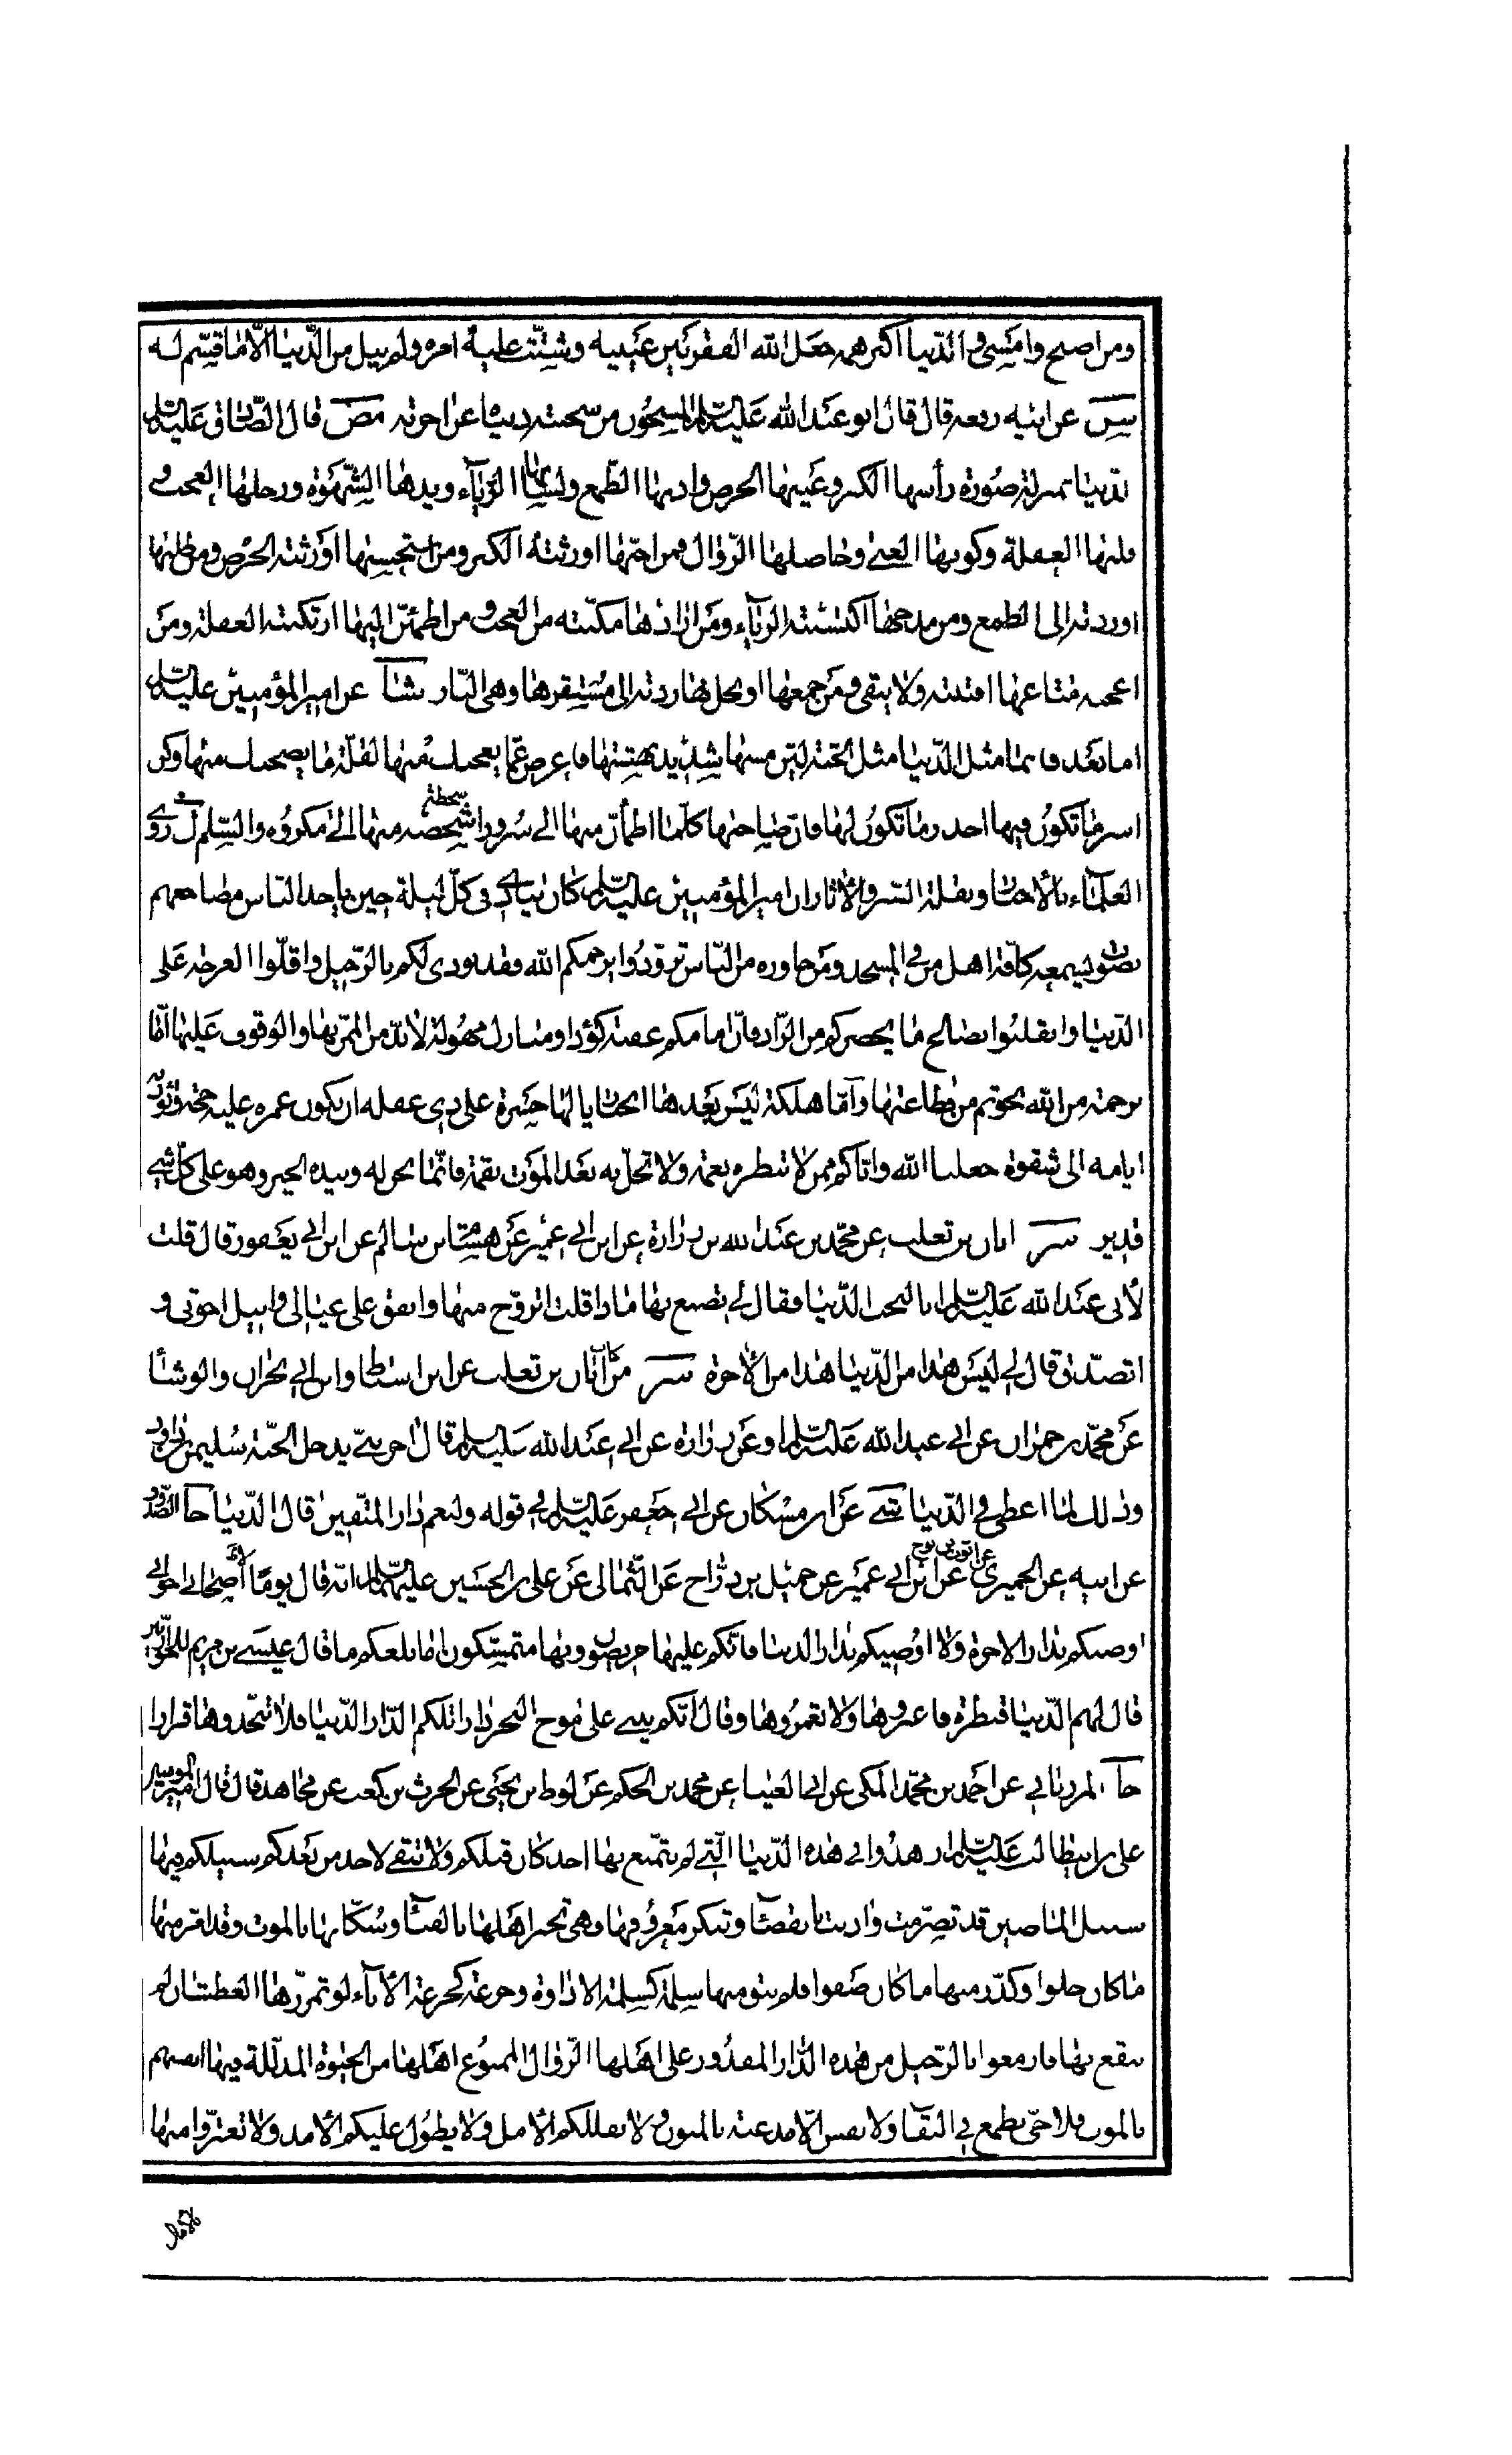 ومن اصبح وامسى والدنيا اكبر همه جعل الله الفقر بين عينيه وشتت عليه امره ولم ينل من الدنيا الا ما قسم له
عن ابيه رفعه قال قال ابو عبد الله عليه السلم المسجون من سجنته دنياه عن اخرته مص قال الصادق عليه السلم
الدنيا بمنزلة صورة رأسها الكبر وعينها الحرص واذنها الطمع ولسانها الرياء ويدها الشهوة ورجلها العجب و
قلبها الغفلة وكونها الفناء وحاصلها الزوال فمن احبها اورثته الكبر ومن استحسنها اورثته الحرص ومن طلبها
اوردته الى الطمع ومن مدحها اكسته الرياء ومن ارادها مكنته من العجب ومن اطمئن اليها اركبته الغفلة ومن
اعجبه متاعها افتنته ولا يبقى ومن جمعها وبخل بها ردته الى مستقرها وهى النار شا عن امير المؤمنين عليه السلم
اما بعد فانما مثل الدنيا مثل الحية لين مسها شديد نهشها فاعرض عما يعجبك منها لقلة ما يصحبك منها وكن
اسر ما تكون فيها احذر ما تكون لها فان صاحبها كلما اطمأن منها الى سرور اشخصه منها الى مكروه والسلم روى
العلماء بالاخبار ونقلة السير والاثار ان امير المؤمنين عليه السلم كان ينادى فى كل ليلة حين ياخذ الناس مضاجعهم
بصوت يسمعه كافة اهل من فى المسجد ومن جاوره من الناس تزودوا يرحمكم الله فقد نودى لكم بالرحيل واقلوا العرجة على
الدنيا وانقلبوا بصالح ما يحضركم من الزاد فان امامكم عقبة كؤدا ومنازل مهولة لا بد من الممر بها والوقوف عليها اما
برحمة من الله نجوتم من فظاعتها واما هلكة ليس بعدها انجبار يا لها حسرة على ذى غفلة ان يكون عمره عليه حجة وتؤديه
ايامه الى شقوة جعلنا الله واياكم ممن لا تبطره نعمة ولا تحل به بعد الموت نقمة فانما نحن له وبيده الخير وهو على كل شىء
قدير سر ابان بن تغلب عن محمد بن عبد الله بن زرارة عن ابن ابى عمير عن هشام بن سالم عن ابن ابى يعفور قال قلت
لأبى عبد الله عليه السلم انا لنحب الدنيا فقال لى تصنع بها ماذا قلت اتزوج منها وانفق على عيالى وانيل اخوتى و
اتصدق قال لى ليس هذا من الدنيا هذا من الأخرة سر من ابان بن تغلب عن ابن اسباط وابن ابى نجران والوشاء
عن محمد بن حمران عن ابى عبد الله عليه السلم او عن زرارة عن ابى عبد الله عليه السلم قال اخر نبى يدخل الجنة سليمن بن داود
وذلك لما اعطى فى الدنيا شى عن ابن مسكان عن ابى جعفر عليه السلم فى قوله ولنعم دار المتقين قال الدنيا جا الصدوق
عن ابيه عن الحميرى عن ايوب بن نوح عن ابن ابى عمير عن جميل بن دراج عن الثمالى عن على بن الحسين عليهما السلم انه قال يوما لأصحابه اخوانى
اوصيكم بدار الاخرة ولا اوصيكم بدار الدنيا فانكم عليها حريصون وبها متمسكون اما بلغكم ما قال عيسى بن مريم للحواريين
قال لهم الدنيا قنطرة فاعبروها ولا تعمروها وقال ايكم يبنى على موج البحر دارا تلكم الدار الدنيا فلا تتخذوها قرارا
جا المرزبانى عن احمد بن محمد المكى عن ابى العينا عن محمد بن الحكم عن لوط بن يحيى عن الحرث بن كعب عن مجاهد قال قال امير المؤمنين
على بن ابيطالب عليه السلم ازهدوا فى هذه الدنيا التى لم يتمتع بها احد كان قبلكم ولا تبقى لاحد من بعدكم سبيلكم فيها
سبيل الماضين قد تصرمت واذنت بانقضاء وتنكر معروفها وهى تخبر اهلها بالفناء وسكانها بالموت وقد امر منها
ما كان حلوا وكدر منها ما كان صفوا فلم يبق منها سملة كسملة الاداوة وجرعة كجرعة الأناء لو تمززها العطشان لم
ينقع بها فازمعوا بالرحيل من هذه الدار المقدور على اهلها الزوال الممنوع اهلها من الحيوة المذللة فيها انفسهم
بالموت فلا حى يطمع فى البقاء ولا نفس الا مذعنة بالمنون ولا يعللكم الأمل ولا يطول عليكم الأمد ولا تغتروا منها
بالآمال